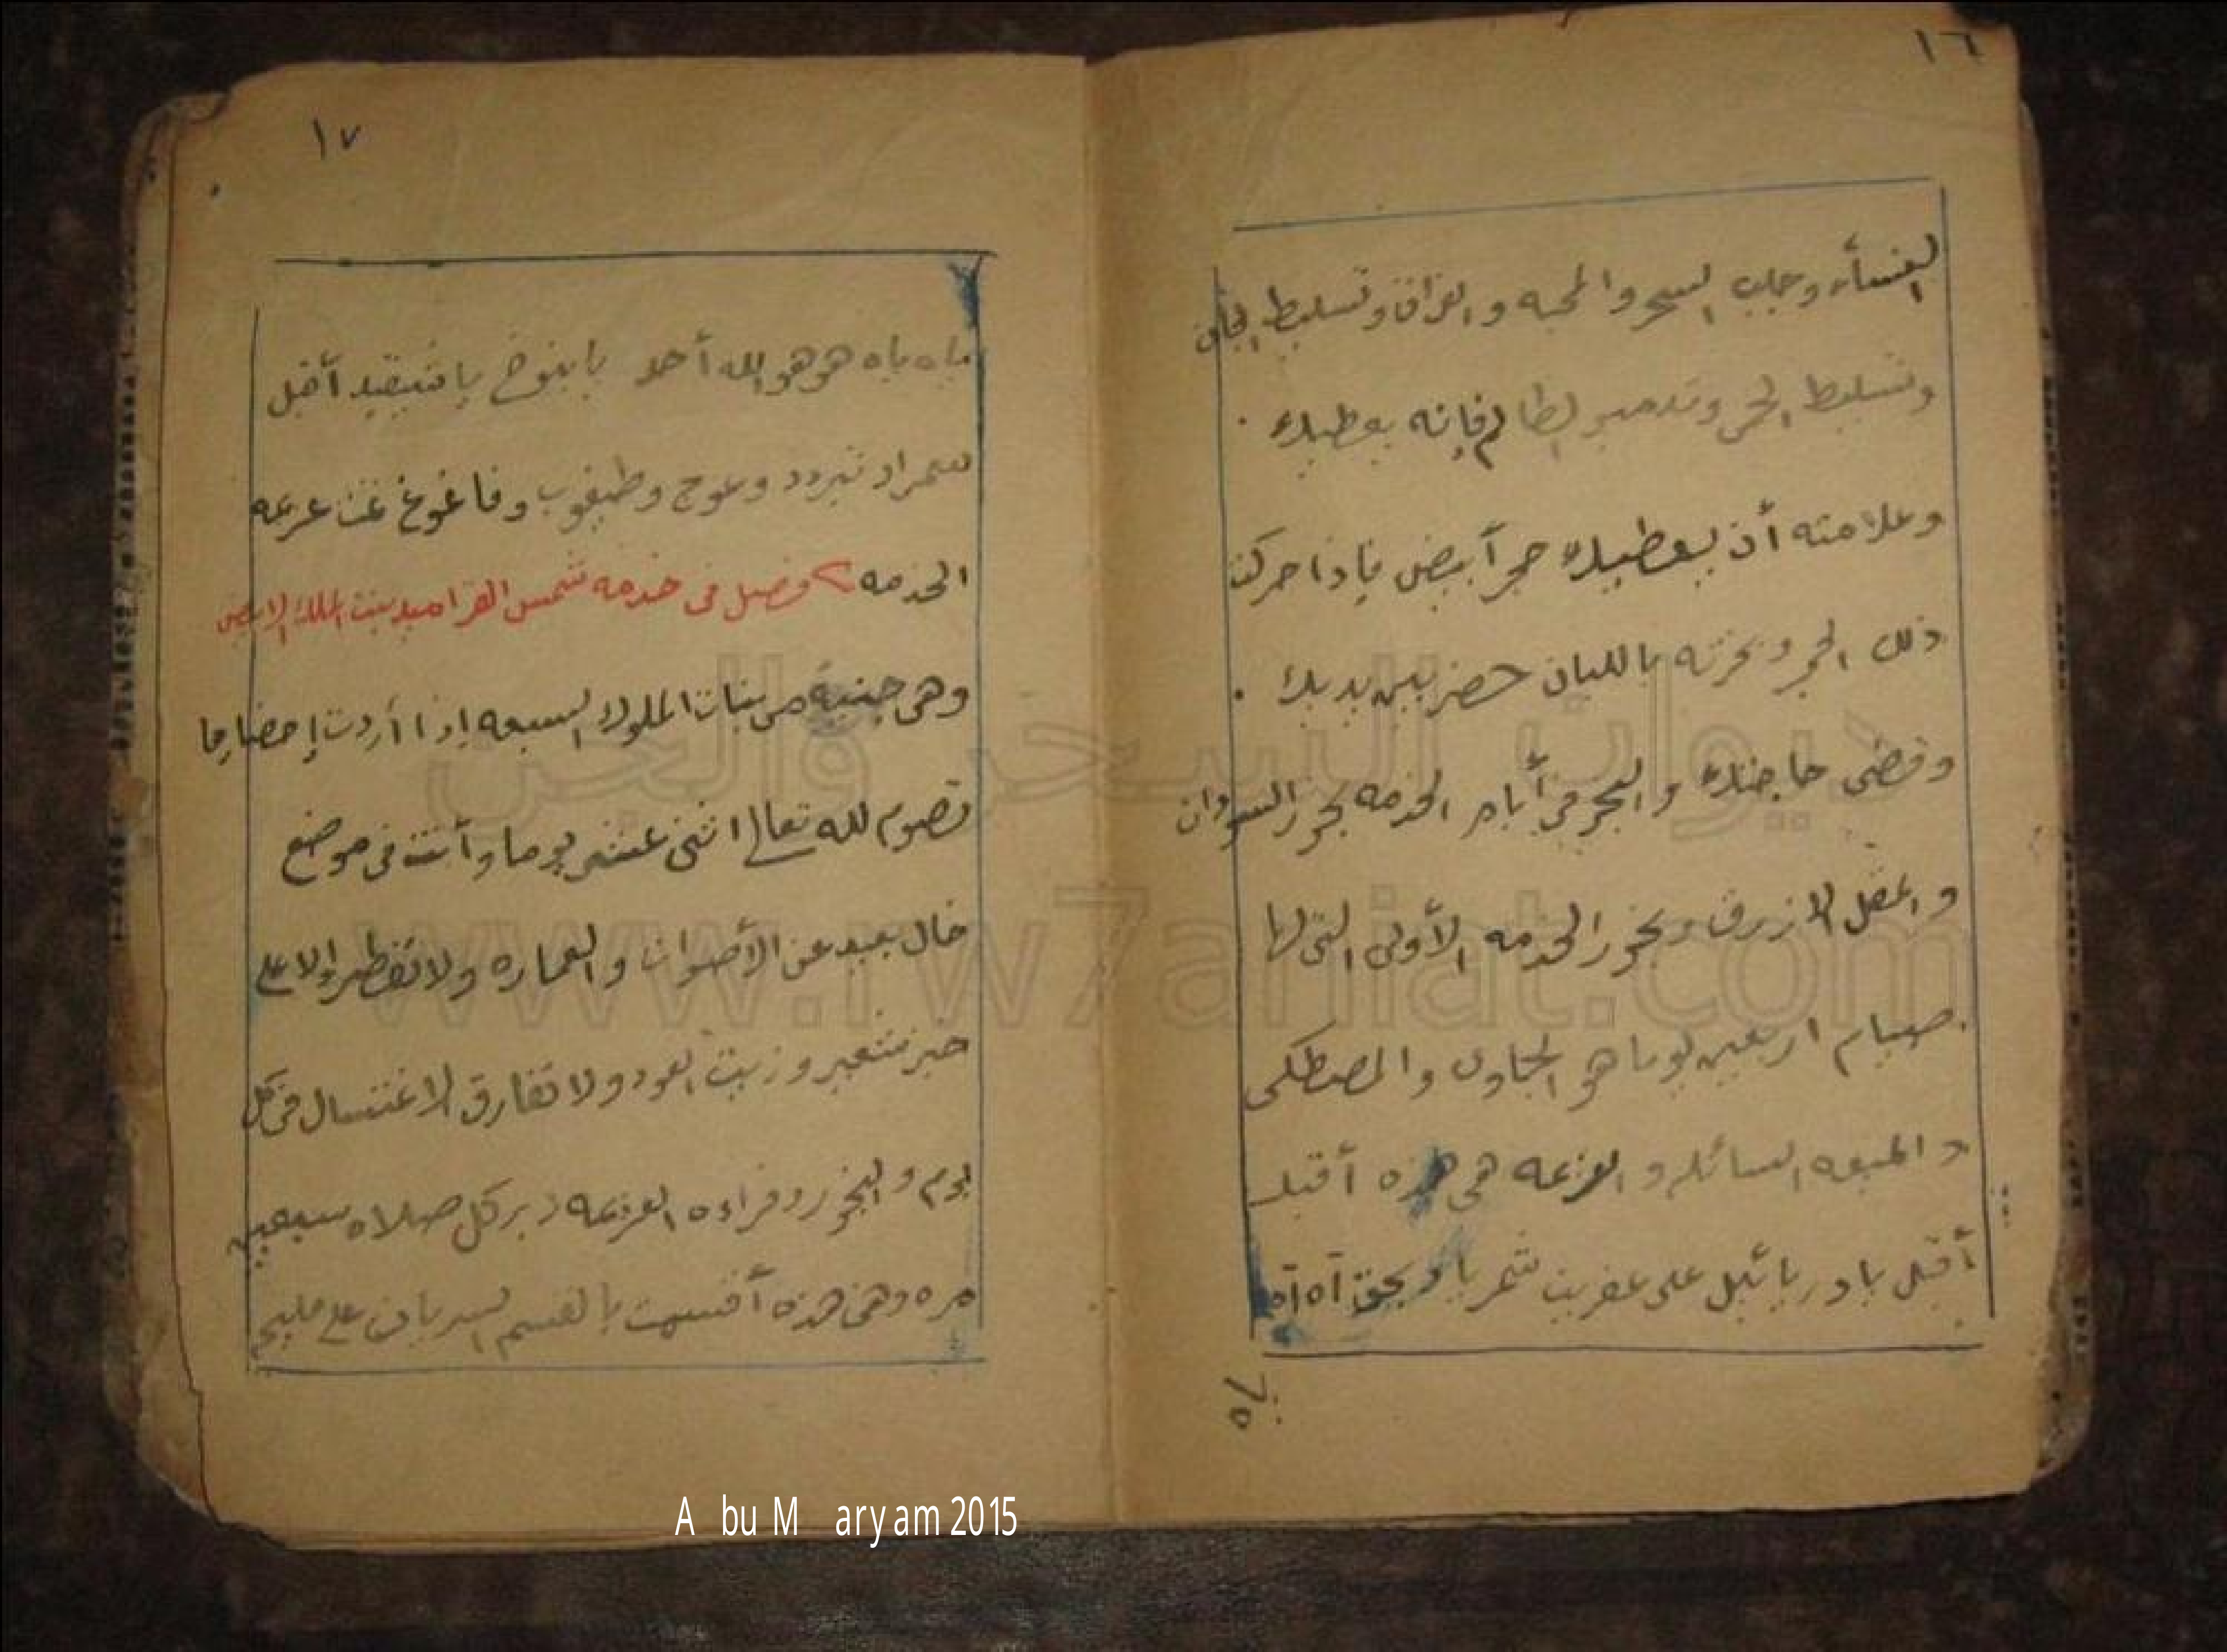 ١٦
النساء وجلب السحر والمحبه والفراق وتسليط الجان
وتسليط الحمى وتدمير الظالم فإنه يعطيك
وعلامته أن يعطيك حجر أبيض فإذا حركت
ذلك الحجر وبخرته باللبان حضر بين يديك
وقضى حاجتك والبخور في أيام الخدمه بخور السودان
والمقل الازرق وبخور الخدمه الأولى التى لها
صيام اربعين يوما هو الجاوى والمصطكى
والميعه السائله والعزيمه هى هذه أقبل
أقبل يا دريائيل على عفريت شمر يا بحق آه آه
ياه
١٧
ياه ياه هو هو الله أحد يا ينوخ يا أقبل
وعوج وطيغوب وفاغوغ تمت عزيمه
الخدمه فصل فى خدمه شمس القراميد بنت الملك الابيض
وهى جنية من بنات الملوك السبعه إذا أردت إحضارها
تصوم لله تعالى اثنى عشر يوما وأنت فى موضع
خال بعيد عن الأصوات والعماره ولا تفطر إلا على
خبز شعير وزيت العود ولا تفارق الاغتسال فى كل
يوم والبخور وقراءه العزيمه دبر كل صلاه سبعين
مره وهى هذه أقسمت بالقسم السريانى على مليح
ديوان السحر والجن
www.rw7aniat.com
A bu M aryam 2015